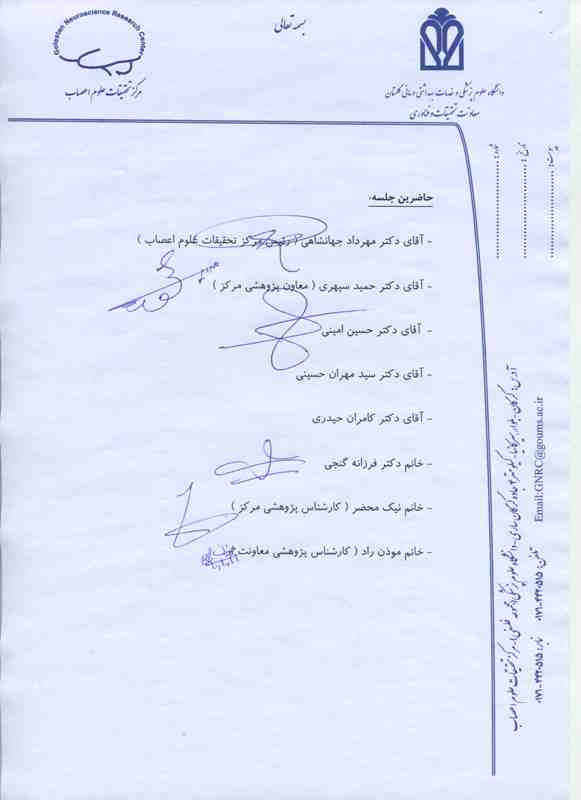 بسمه تعالی
Golestan Neuroscience Research Center
مرکز تحقیقات علوم اعصاب
دانشگاه علوم پزشکی و خدمات بهداشتی درمانی گلستان
معاونت تحقیقات و فناوری
شماره :
تاریخ :
پیوست :
حاضرین جلسه:
- آقای دکتر مهرداد جهانشاهی ( رئیس مرکز تحقیقات علوم اعصاب )
- آقای دکتر حمید سپهری ( معاون پژوهشی مرکز )
- آقای دکتر حسین امینی
- آقای دکتر سید مهران حسینی
- آقای دکتر کامران حیدری
- خانم دکتر فرزانه گنجی
- خانم نیک محضر ( کارشناس پژوهشی مرکز )
- خانم موذن راد ( کارشناس پژوهشی معاونت
آدرس: گرگان - دانشگاه علوم پزشکی مرکز تحقیقات علوم اعصاب
تلفن: ۰۱۷۱-۴۴۲۰۵۱۵ نمابر: ۰۱۷۱-۴۴۲۰۵۱۵
Email:GNRC@goums.ac.ir